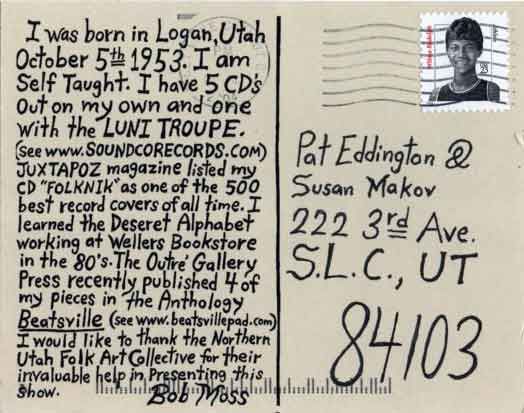 I was born in Logan, Utah
October 5th 1953. I am
Self Taught. I have 5 CD's
Out on my own and one
with the LUNI TROUPE.
(see www.SOUNDCORECORDS.COM)
JUXTAPOZ magazine listed my
CD "FOLKNIK" as one of the 500
best record covers of all time. I
learned the Deseret Alphabet
working at Wellers Bookstore
in the 80's. The Outré Gallery
Press recently published 4 of
my pieces in the Anthology
Beatsville (see www.beatsvillepad.com)
I would like to thank the Northern
Utah Folk Art Collective for their
invaluable help in Presenting this
Show. Bob Moss
Pat Eddington &
Susan Makov
222 3rd Ave.
S.L.C., UT
84103